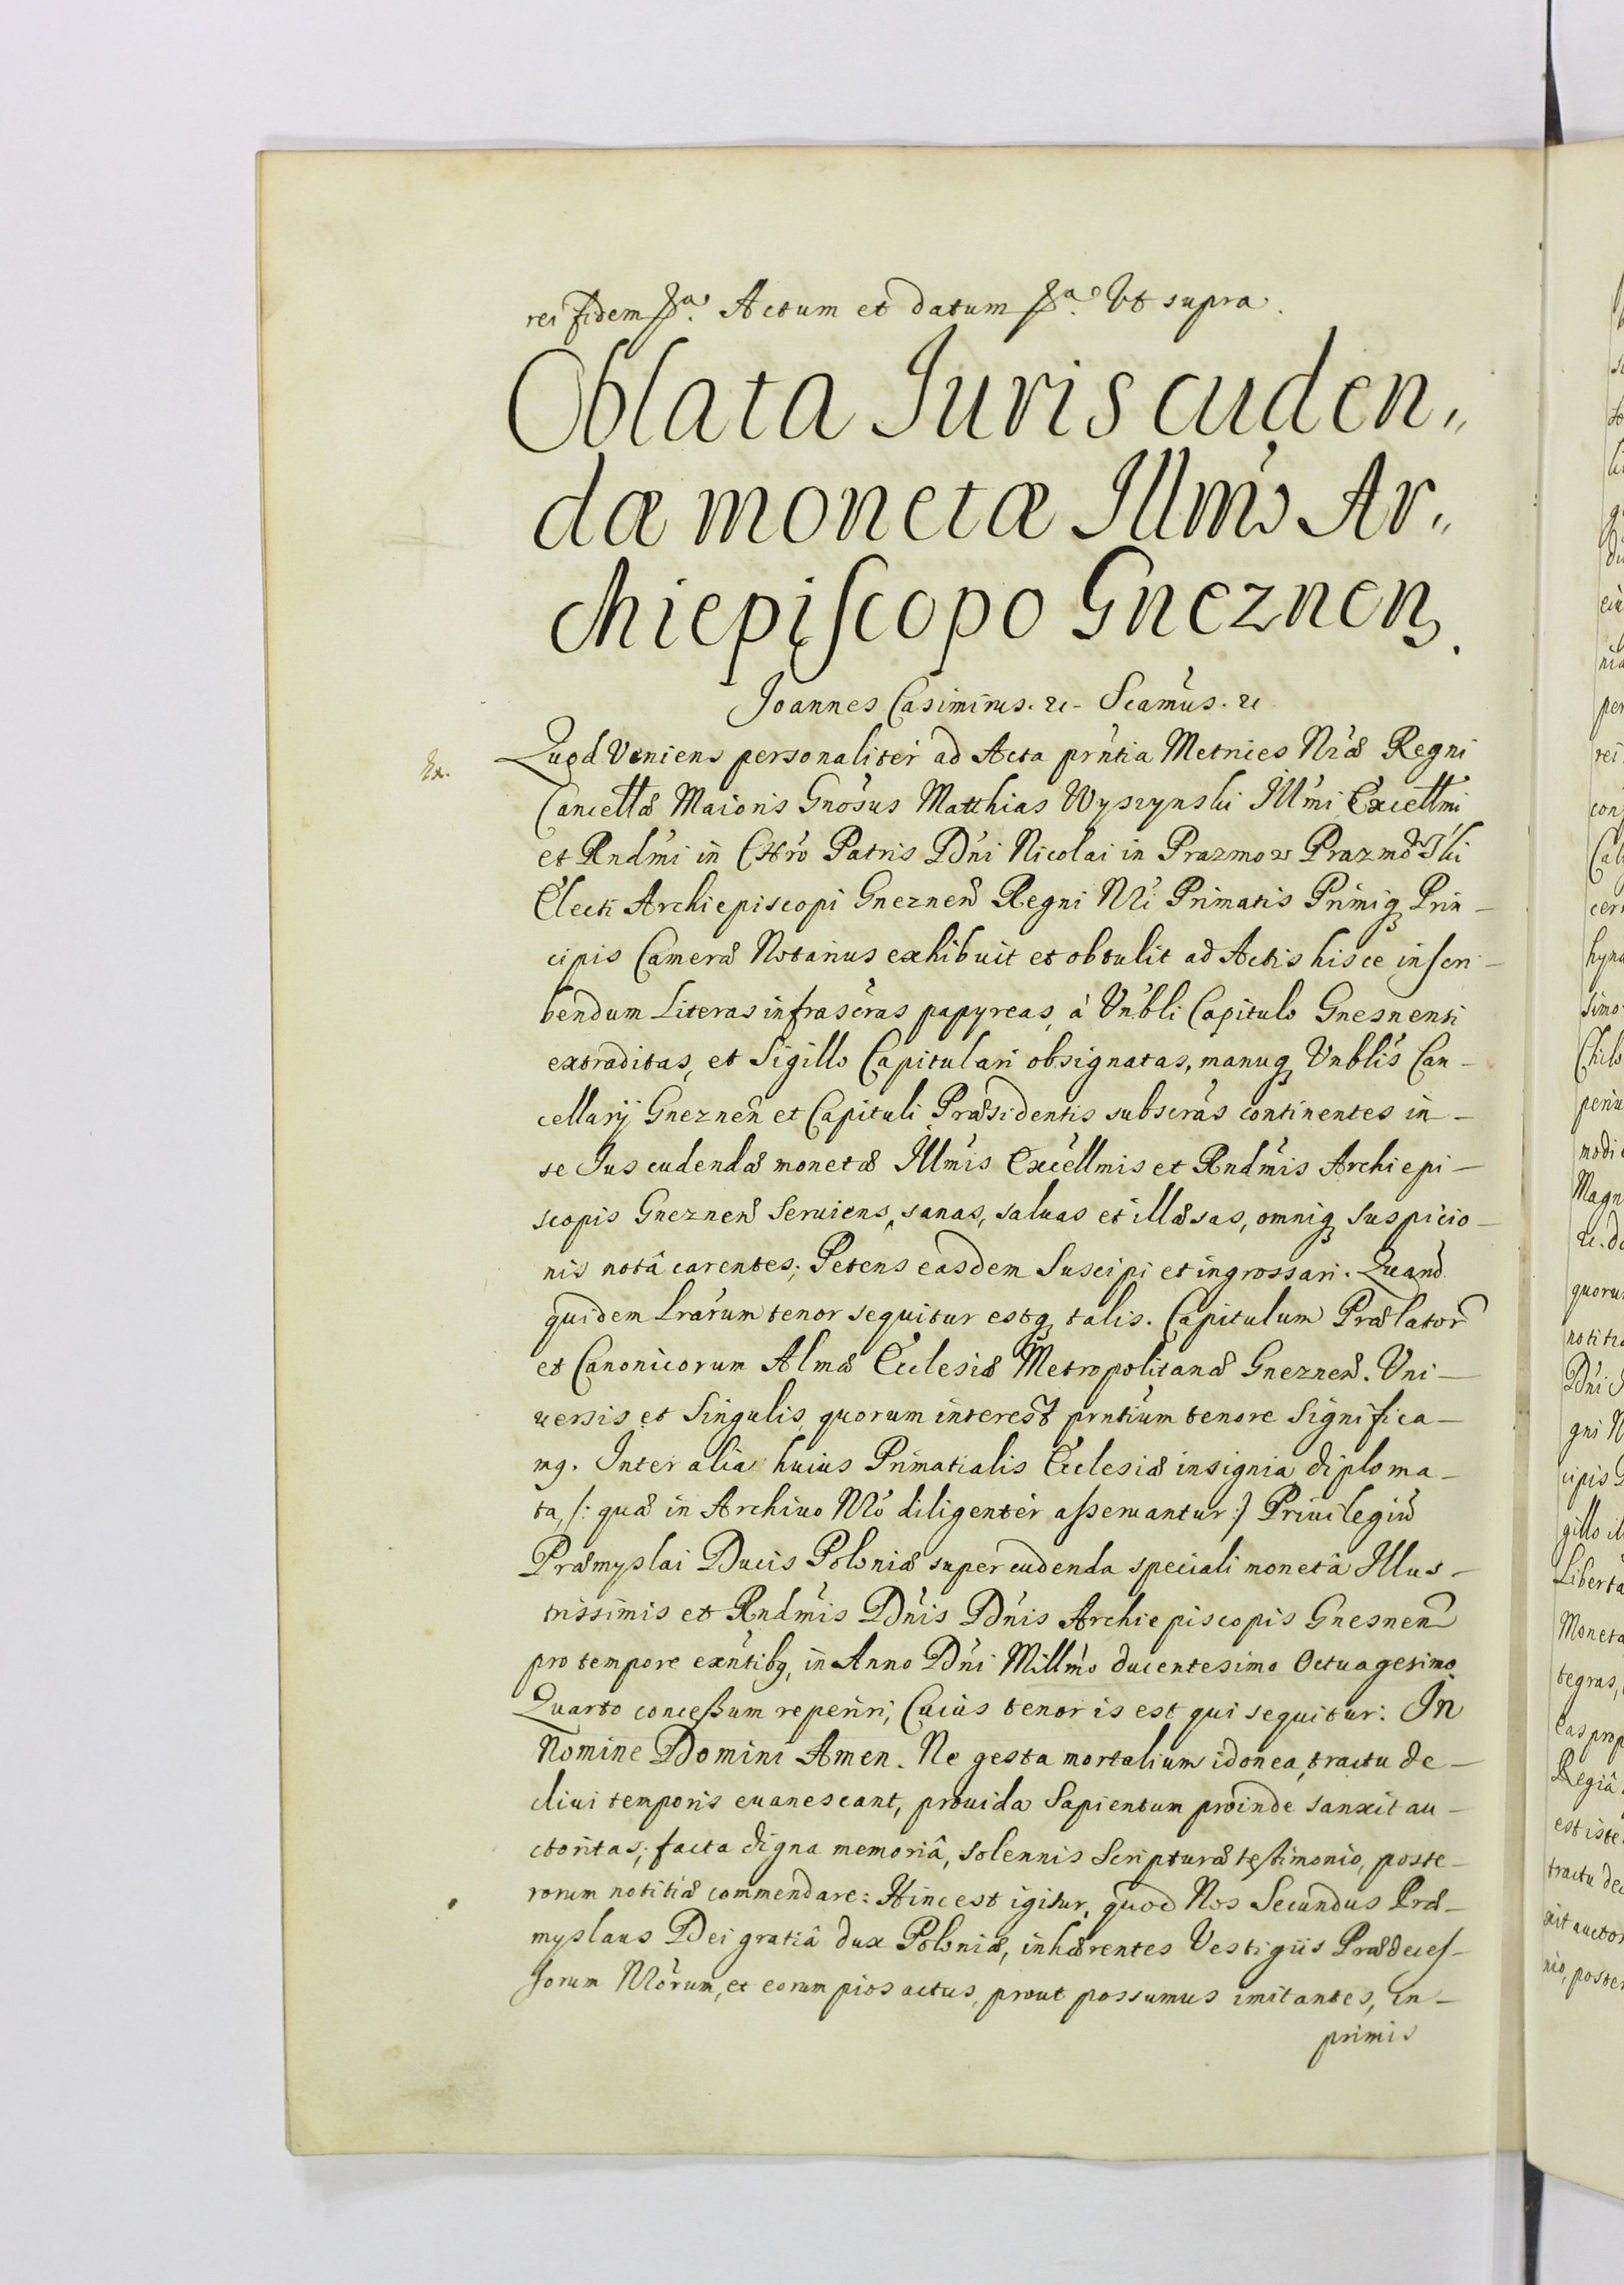 rei fidem &a. Actum et datum &a. Vt supra.
Oblata Iuris cuden„
dæ monetæ Illm̃o Ar„
chiepiscopo Gneznen̄.
Joannes Casimirus. &c. Scamus. &c
Ex.
Quod Veniens personaliter ad Acta prńtia Metrices Nræ Regni
Cancellæ Maioris Gnosus Matthias Wyszynski Illmi Excellmi
et Rndmi in Chro Patris Dńi Nicolai in Prazmow Prazmowski
Electi Archiepiscopi Gneznen̄ Regni Nri Primatis Primiq, Prin-
cipis Cameræ Notarius exhibuit et obtulit ad Actis hisce inscri-
bendum Literas infrascras papyreas, à Vnbli Capitulo Gnesnensi
extraditas, et Sigillo Capitulari obsignatas, manuq, Vnblis Can-
cellarij Gneznen̄ et Capituli Præsidentis subscras continentes in-
se Jus cudendæ monetæ Illmis Excellmis et Rndmis Archiepi-
scopis Gneznen̄ Seruiens, sanas, saluas et illæsas, omniq, Suspicio-
nis notâ carentes; Petens easdem Suscipi et ingrossari. Quarū
quidem Lrarum tenor sequitur estq, talis. Capitulum Prælatorū
et Canonicorum Almæ Ecclesiæ Metropolitanæ Gneznen̄. Vni-
uersis et Singulis, quorum interest prntium tenore Significa-
mq. Inter alia huius Primatialis Ecclesiæ insignia diploma-
ta, /: quæ in Archiuo Nro diligenter asseruantur :/ Priuilegiū
Præmyslai Ducis Poloniæ super cudenda speciali monetâ Illus-
trissimis et Rndmis Dńis Dńis Archiepiscopis Gnesnen̄
pro tempore exntibq, in Anno Dńi Millmo ducentesimo Octuagesimo
Quarto concessum reperiri, Cuius tenor is est qui sequitur: In
Nomine Domini Amen. Ne gesta mortalium idonea, tractu de-
cliui temporis euanescant, prouida Sapientum proinde sanxit au-
ctoritas; facta digna memoriâ, solennis Scripturæ testimonio, poste-
rorum notitiæ commendare: Hinc est igitur, quod Nos Secundus Præ-
myslaus Dei gratiâ dux Poloniæ, inhærentes Vestigiis Prædeces-
sorum Nrorum, et eorum pios actus, prout possumus imitantes, in-
primis